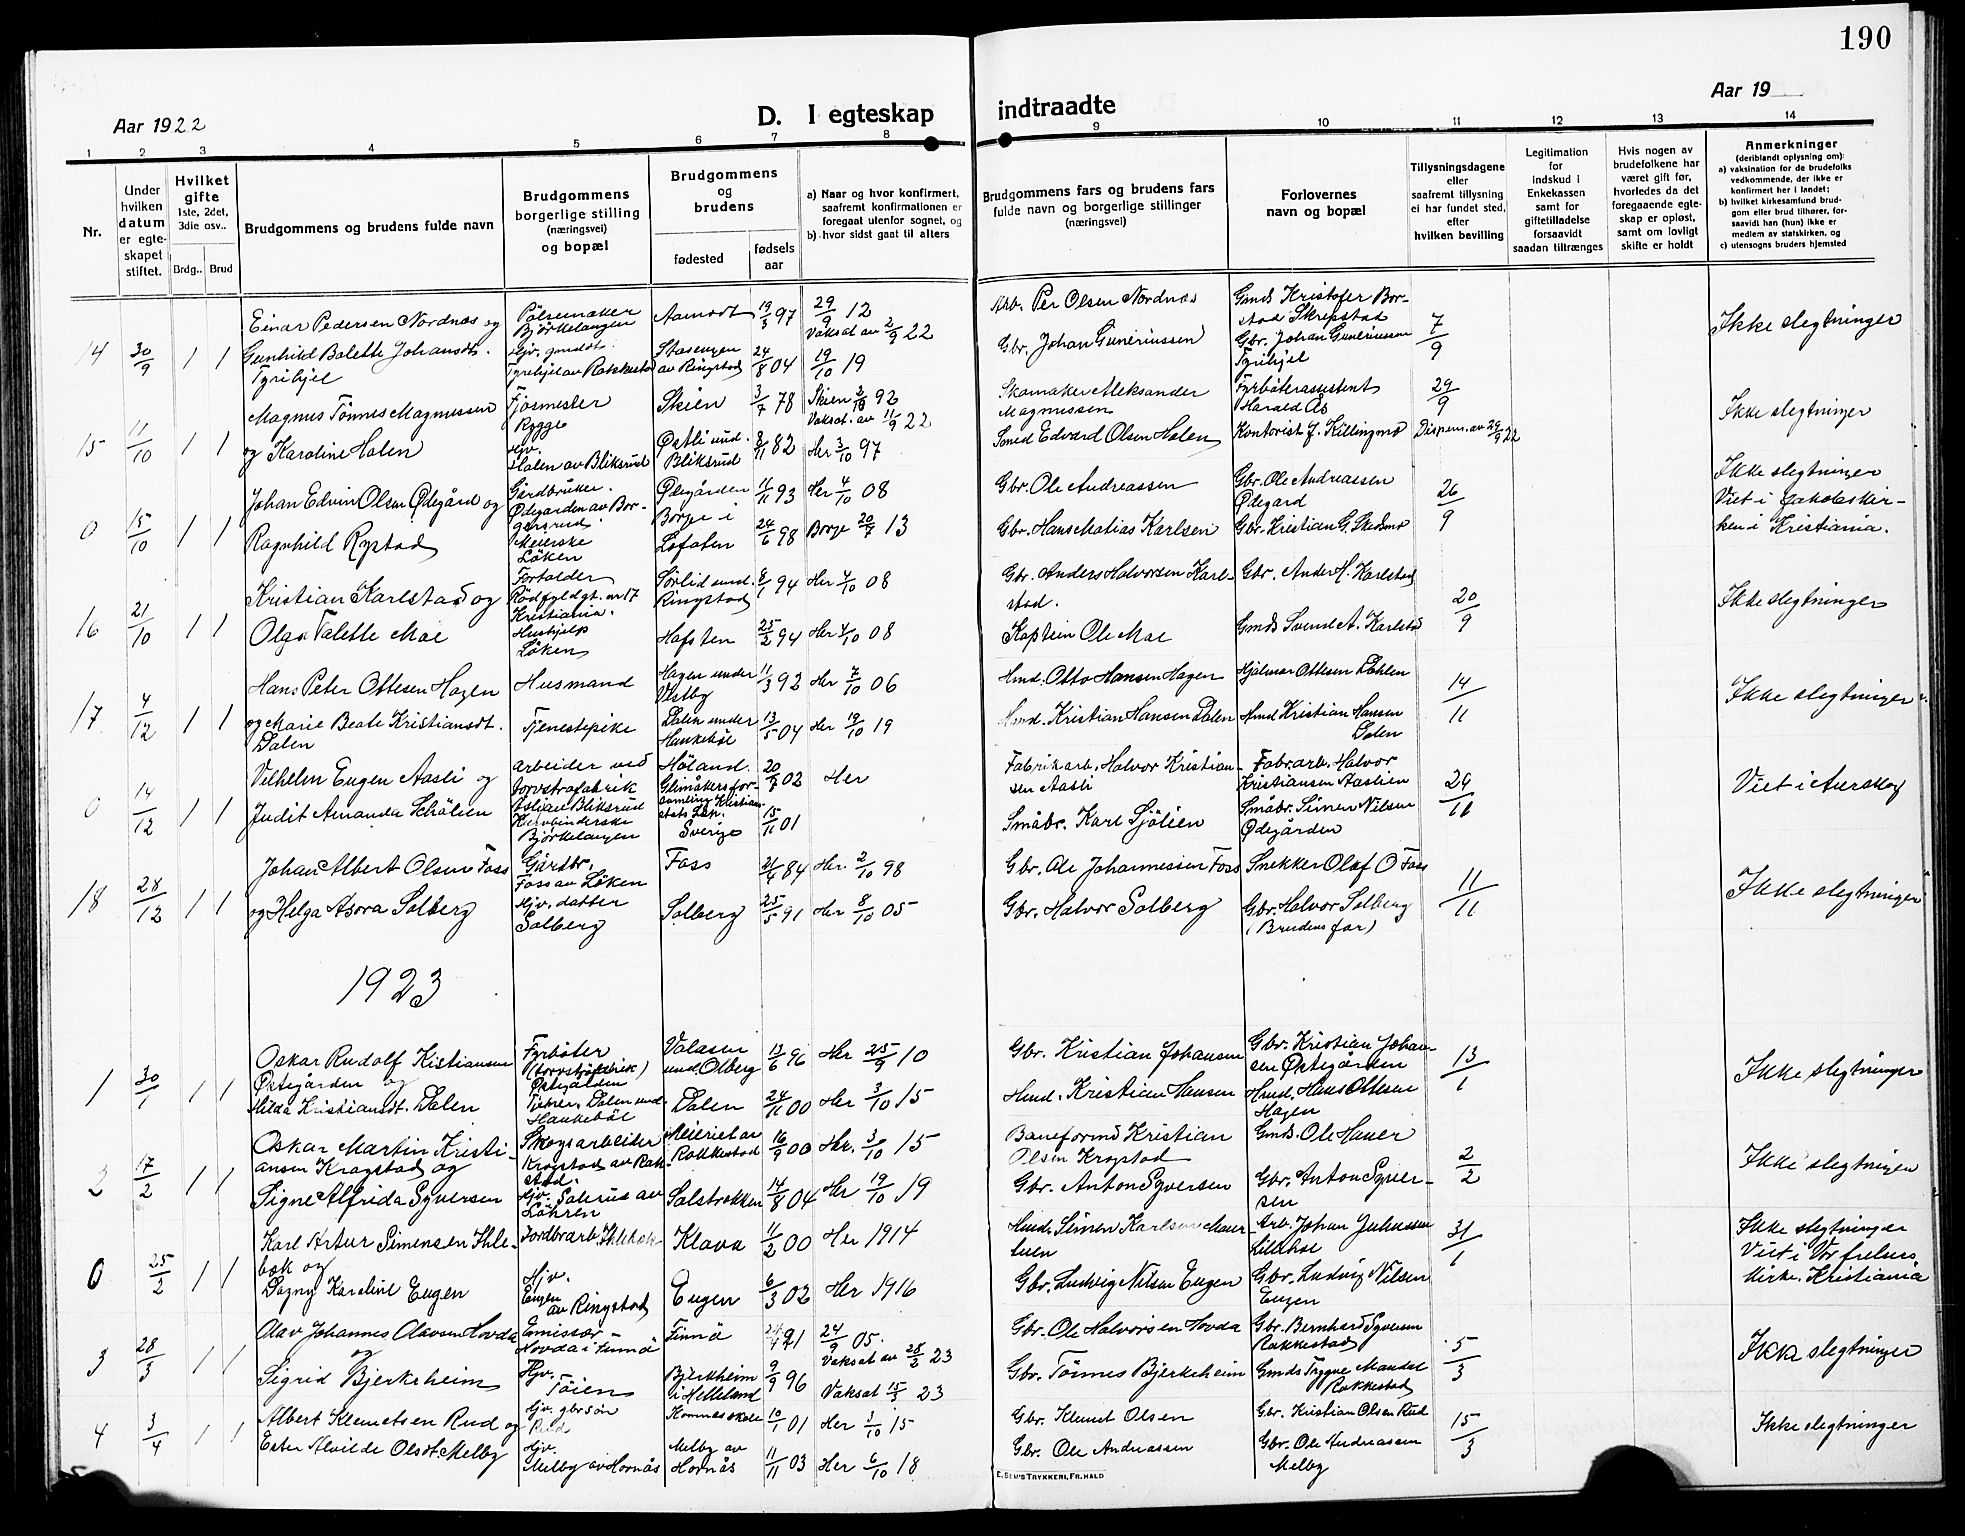 190
Aar 1922
D. I egteskap
indtraadte
Aar 19
1 2 3 4 5 6 7 8 9 10 11 12 13 14
Nr.
Under hvilken datum er egteskapet stiftet.
Hvilket gifte 1ste, 2det, 3die osv..
Brdg.. Brud
Brudgommens og brudens fulde navn
Brudgommens borgerlige stilling (næringsvei) og bopæl
Brudgommens og brudens
fødested
fødsels aar
a) Naar og hvor konfirmert, saafremt konfirmationen er foregaat utenfor sognet, og
b) hvor sidst gaat til alters
Brudgommens fars og brudens fars fulde navn og borgerlige stillinger (næringsvei)
Forlovernes navn og bopæl
Tillysningsdagene eller saafremt tillysning ei har fundet sted, efter hvilken bevilling
Legitimation for indskud i Enkekassen samt for giftetilladelse forsaavidt saadan tiltrænges
Hvis nogen av brudefolkene har været gift før, hvorledes da det foregaaende egteskap er opløst, samt om lovligt skifte er holdt
Anmerkninger (deriblandt oplysning om):
a) vaksination for de brudefolks vedkommende, der ikke er konfirmert her i landet;
b) hvilket kirkesamfund brudgom eller brud tilhører, forsaavidt han (hun) ikke er medlem av statskirken, og
c) utensogns bruders hjemsted
14 30/9 1 1
Einar Pedersen Nordnæs og
Gunhild Bolette Johansdt.
Tyrihjel
Pølsemaker
Bjørkelangen
Hjv. gmddt.
Tyrihjel av Rakkestad
Aamodt 19/3 97 29/9 12
Vaksat av 2/9 22
Stasengen
av Ringstad 24/8 04 19/10 19
Arb. Per Olsen Nordnæs
Gbr. Johan Guneriussen
Gmds Kristofer Bor-
stad Skrepstad
Gbr. Johan Guneriussen
Tyrihjel
7/9
Ikke slegtninger
15 11/10 1 1
Magnus Tønnes Magnussen
og Karoline Holen
Fjøsmester
Rygge
Hjv.
Holen av Bliksrud
Skien 3/7 78 Skien 2/10 92
Vaksat. av 11/9 22
Østli und.
Bliksrud 8/11 82 Her 3/10 97
Skomaker Aleksander
Magnussen
Smed Edvard Olsen Holen
Fyrbøterassistent
Harald Ås
Kontorist J. Killingmo
29/9
Dispens. av 29/9 22
Ikke slegtninger
0 15/10 1 1
Johan Edvin Olsen Ødegård og
Ragnhild Rystad
Gårdbruker.
Ødegården av Bor-
gersrud.
Meierske
Løken
Ødegården 11/11 93 Her 4/10 08
Borge i
Lofoten 24/6 98 Borge 20/7 13
Gbr. Ole Andreassen
Gbr. Hans Matias Karlsen
Gbr. Ole Andreassen
Ødegard
Gbr. Kristian G. Skedsmo
26/9
Ikke slegtninger
Viet i Jakobskir-
ken i Kristiania.
16 21/10 1 1
Kristian Karlstad og
Olga Valette Moe
Forholder
Rødfyldgt. nr 17
Kristiania.
Hushjelp
Løken
Sørlid und.
Ringstad 8/1 94 Her 4/10 08
Hofsten 25/2 94 Her 4/10 08
Gbr. Anders Halvorsen Karl-
stad.
Kaptein Ole Moe
Gbr. Anders H. Karlstad
Gmds Svend A. Karlstad
20/9
Ikke slegtninger
17 4/12 1 1
Hans Peter Ottesen Hagen
og Marie Beate Kristiansdt.
Dalen
Husmand
Tjenestepike
Hagen under
Vestby 11/3 92 Her 7/10 06
Dalen under
Haukebøl 13/5 04 Her 19/10 19
Hmd. Otto Hansen Hagen
Hmd. Kristian Hansen Dalen
Hjalmar Ottesen Dahlen
Hmd Kristian Hansen
Dalen
14/11
Ikke slegtninger
0 14/12 1 1
Vilhelm Eugen Aasli og
Judit Amanda Schölien
arbeider ved
torvstrøfabrik
Aslian Bliksrud
Hernbinderske
Bjørkelangen
Høland. 20/7 02 Her
Glimåkersfor-
samling Kristian-
stads Län.
Sverige 15/11 01
Fabrikarb. Halvor Kristian-
sen Aasli
Småbr. Karl Sjölien
Fabrarb. Halvor
Kristiansen Aaslien
Småbr. Simen Nilsen
Ødegården
29/11
Viet i Aurskog
18 28/12 1 1
Johan Albert Olsen Foss
og Helga Asora Solberg
Gårdbr.
Foss av Løken
Hjv. datter
Solberg
Foss 21/4 84 Her 2/10 98
Solberg 25/5 91 Her 8/10 05
Gbr. Ole Johannessen Foss
Gbr. Halvor Solberg
Snekker Olaf O Foss
Gbr. Halvor Solberg
(Brudens far)
11/11
Ikke slegtninger
1923
1 30/1 1 1
Oskar Rudolf Kistiansen
Østegården og
Hilda Kristiansdt. Dalen
Fyrbøter
(torvstrøfabrik)
Østegården
Tjener. Dalen und
Haukebøl
Valasen
und. Olberg 13/6 96 Her 25/9 10
Dalen 24/11 00 Her 3/10 15
Gbr. Kristian Johansen
Hmd. Kristian Hansen
Gbr. Kristian Johan-
sen Østegården
Hmd. Hans Ottesen
Hagen
13/1
Ikke slegtninger
2 17/2 1 1
Oskar Martin Kristi-
ansen Kragstad og
Signe Alfrida Syversen
Skogsarbeider
Krogstad av Rak-
stad.
Hjv. Salerud av
Løhren
Meieriet av
Rakkestad 16/9 00 Her. 3/10 15
Solstrokken 14/8 04 Her 19/10 19
Baneformd Kristian
Olsen Krogstad
Gbr. Anton Syversen
Gmds. Ole Hauer
Gbr. Anton Syver-
sen
2/2
Ikke slegtninger
0 25/2 1 1
Karl Artur Simensen Ihle-
bæk og
Dagny Karoline Eugen
Jordbrarb Ihlebæk
Hjv.
Eugen
av Ringstad
Klava 11/2 00 Her 1914
Eugen 6/3 02 Her 1916
Hmd. Simen Karlsen Moer-
tuen
Gbr. Ludvig Nilsen Eugen
Arb. Johan Juliussen
Lillehol
Gbr. Ludvig Nilsen
Eugen
31/1
Ikke slegtninger
Viet i Vor frelsers
kirke. Kristiania
3 28/3 1 1
Olav Johannes Olavsen Hovda
og
Sigrid Bjerkrheim
Emissær-
Hovda i Finnö
Hjv.
Töien
Finnö 24/4 91 24/9 05.
Vaksat av 28/2 23
Bjerkheim
i Helleland 9/9 96 Vaksat 15/3 23
Gbr. Ole Halvorsen Hovda
Gbr. Tönnes Bjerkrheim
Gbr. Bernhard Syversen
Rakkestad
Gmds Trygve Mandal
Rakkestad
5/3
Ikke slegtninger
4 3/4 1 1
Albert Klemetsen Rud og
Ester Alvilde Olsdt. Melby
Hjv. gbrsøn
Rud
Hjv.
Melby av Hornås
Kommesskole 10/1 01 Her 3/10 15
Melby av
Hornås 11/11 03 Her 6/10 18
Gbr. Klemet Olsen
Gbr. Ole Andreassen
Gbr. Kristian Olsen Rud
Gbr. Ole Andreassen
Melby
15/3
Ikke slegtninger
E. SEM'S TRYKKERI, FR.HALD